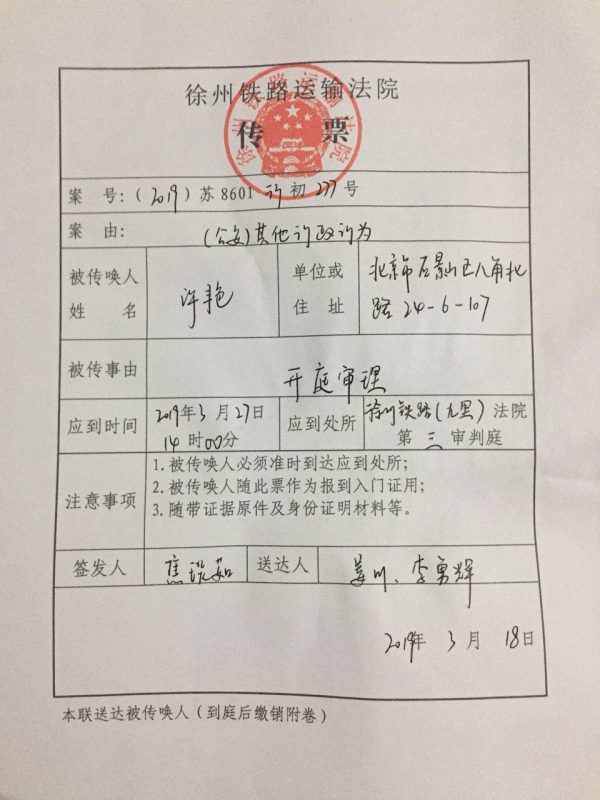 徐州铁路运输法院
徐州铁路运输法院
传 票
案 号:(2019)苏8601 行初 237号
案 由: (公安)其他行政行为
被传唤人
姓 名
许艳
单位或
住 址
北京市石景山区八角北
路24-6-107
被传事由
开庭审理
应到时间
2019年3月27日
14时00分
应到处所
徐州铁路(九里)法院
第三审判庭
注意事项
1.被传唤人必须准时到达应到处所;
2.被传唤人随此票作为报到入门证用;
3.随带证据原件及身份证明材料等。
签发人
送达人
姜川、李勇辉
2019年 3月 18日
本联送达被传唤人(到庭后缴销附卷)